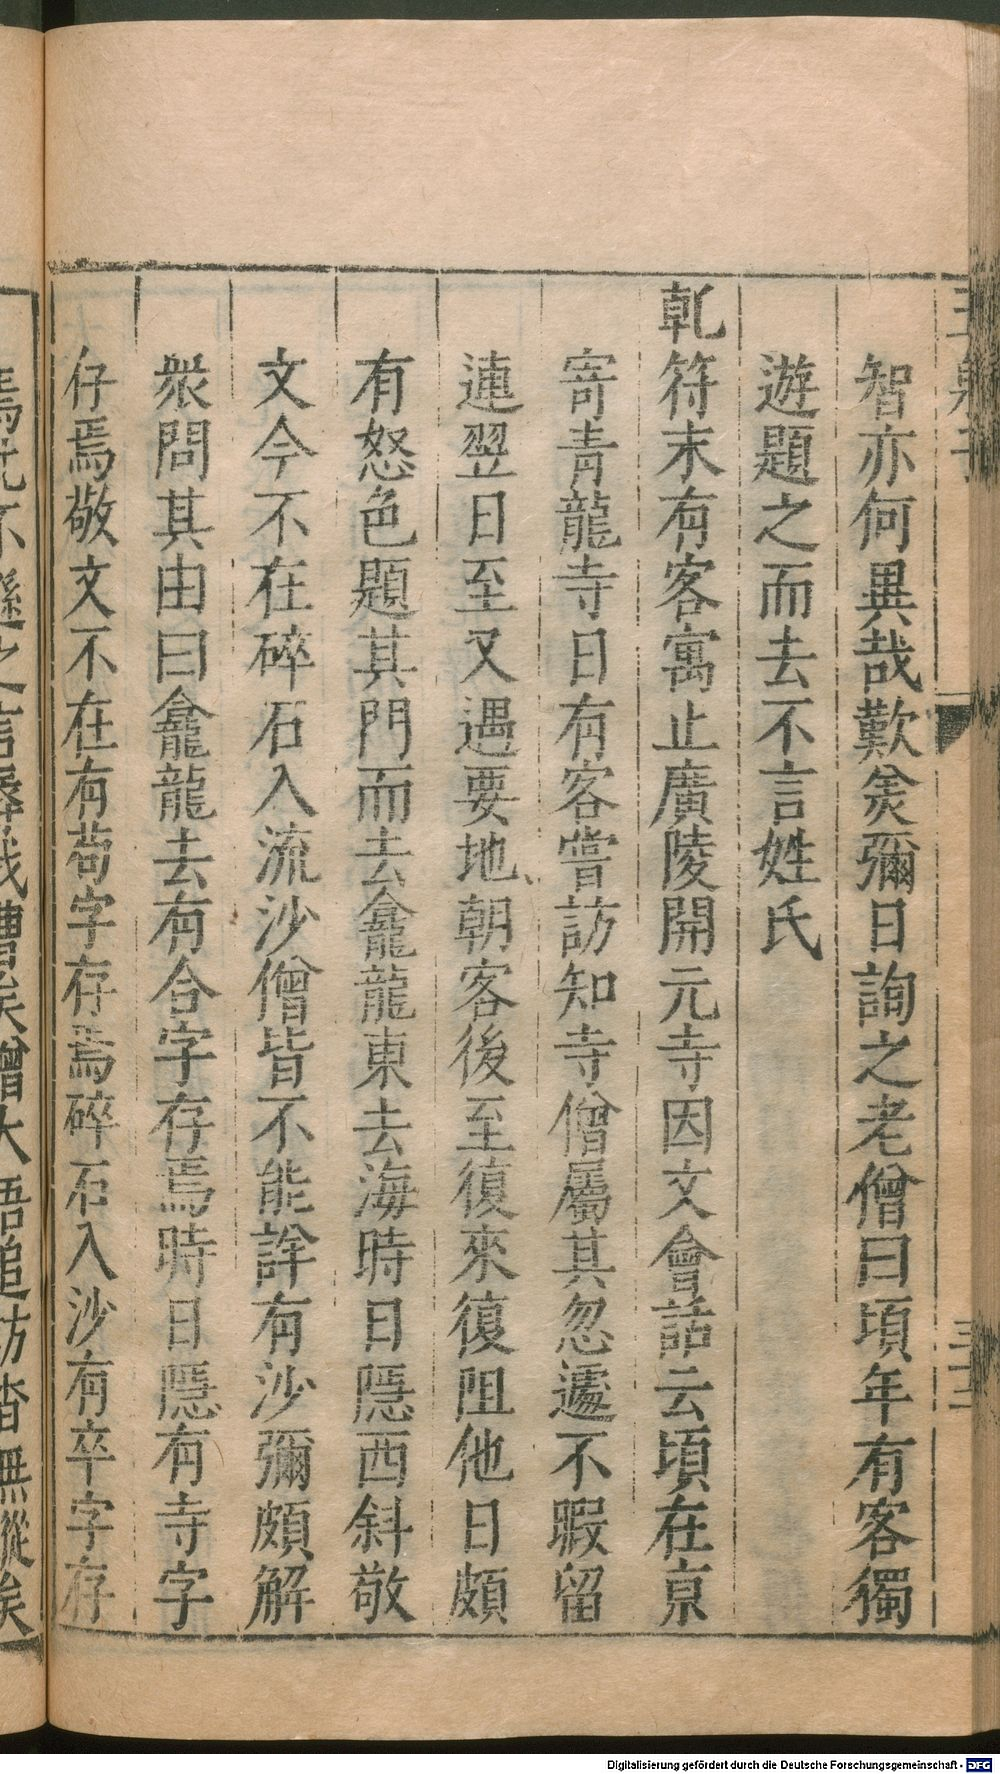 智亦何異哉歎羨彌日詢之老僧曰頃年有客獨
遊題之而去不言姓氏
乹符末有客寓止廣陵開元寺因文會話云頃在京
寄青龍寺日有客嘗訪知寺僧屬其忽遽不暇留
連翌日至又遇要地朝客後至復來復阻他日頗
有怒色題其門而去龕龍東去海時日隱西斜敬
文今不在碎石入流沙僧皆不能詳有沙彌頗解
衆問其由曰龕龍去有合字存焉時日隱有寺字
存焉敬文不在有苟字存焉碎石入沙有卒字存
焉此不遜之言辱我曹矣僧大悟追訪杳無蹤矣
Digitalisierung gefördert durch die Deutsche Forschungsgemeinschaft - DFG